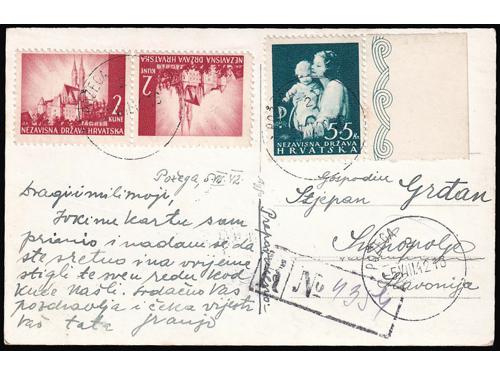 2 KUNE
ZAGREB
NEZAVISNA DRŽAVA HRVATSKA
2 KUNE
NEZAVISNA DRŽAVA HRVATSKA
5+5 Kn.
NEZAVISNA DRŽAVA
HRVATSKA
Požega, 5/VIII.42.
Dragi i mili moji,
kartu sam
primio i nadam se da
ste sretno i na vrijeme
stigli te sve u redu kod
kuće našli. Srdačno Vas
pozdravlja i čeka vijesti
Vaš tata Franjo
Gospodine
Stjepan Grđan
Slavonija
POŽEGA
Preporučeno
No 4354